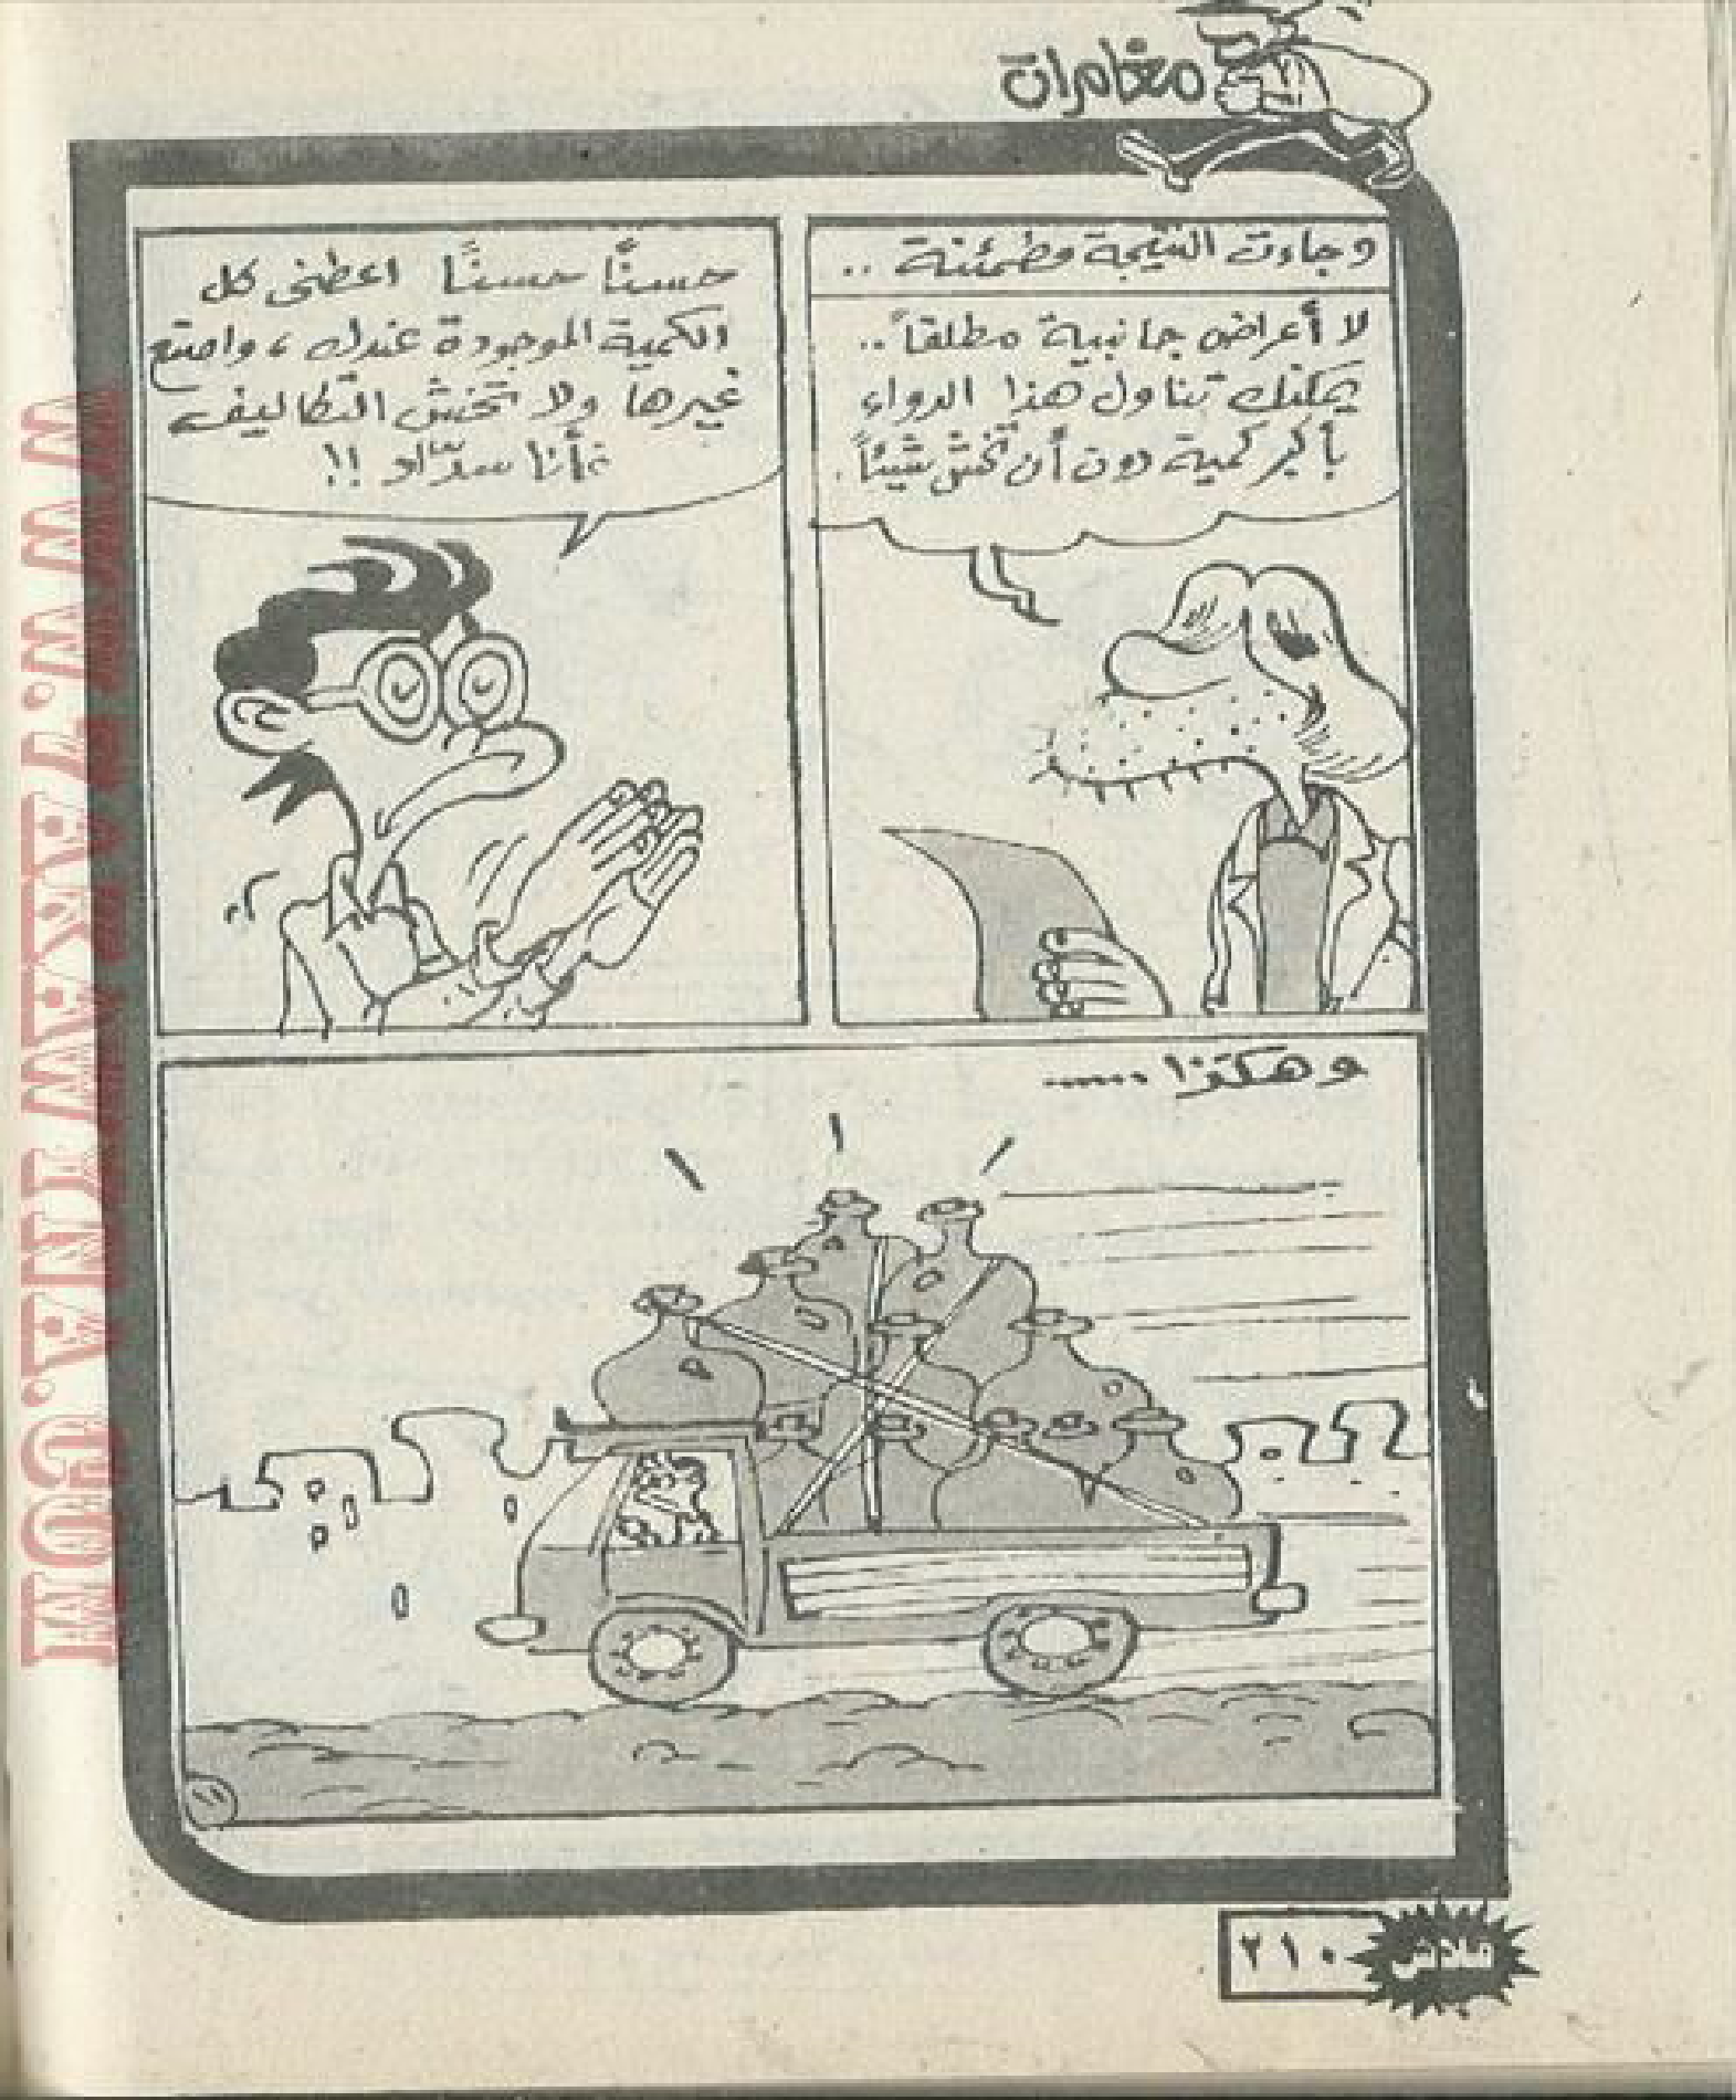 مغامرات
وجاءت النتيجة مطمئنة ..
لا أعراض جانبية مطلقاً ..
يمكنك تناول هذا الدواء
بأكبر كمية دون أن تخش شيئاً .
حسناً حسناً اعطنى كل
الكمية الموجودة عندك ، واصنع
غيرها ولا تخش التكاليف
فأنا سدّاد !!
وهكذا ......
فلاش
٢١٠
WWW.ARABCOMICS